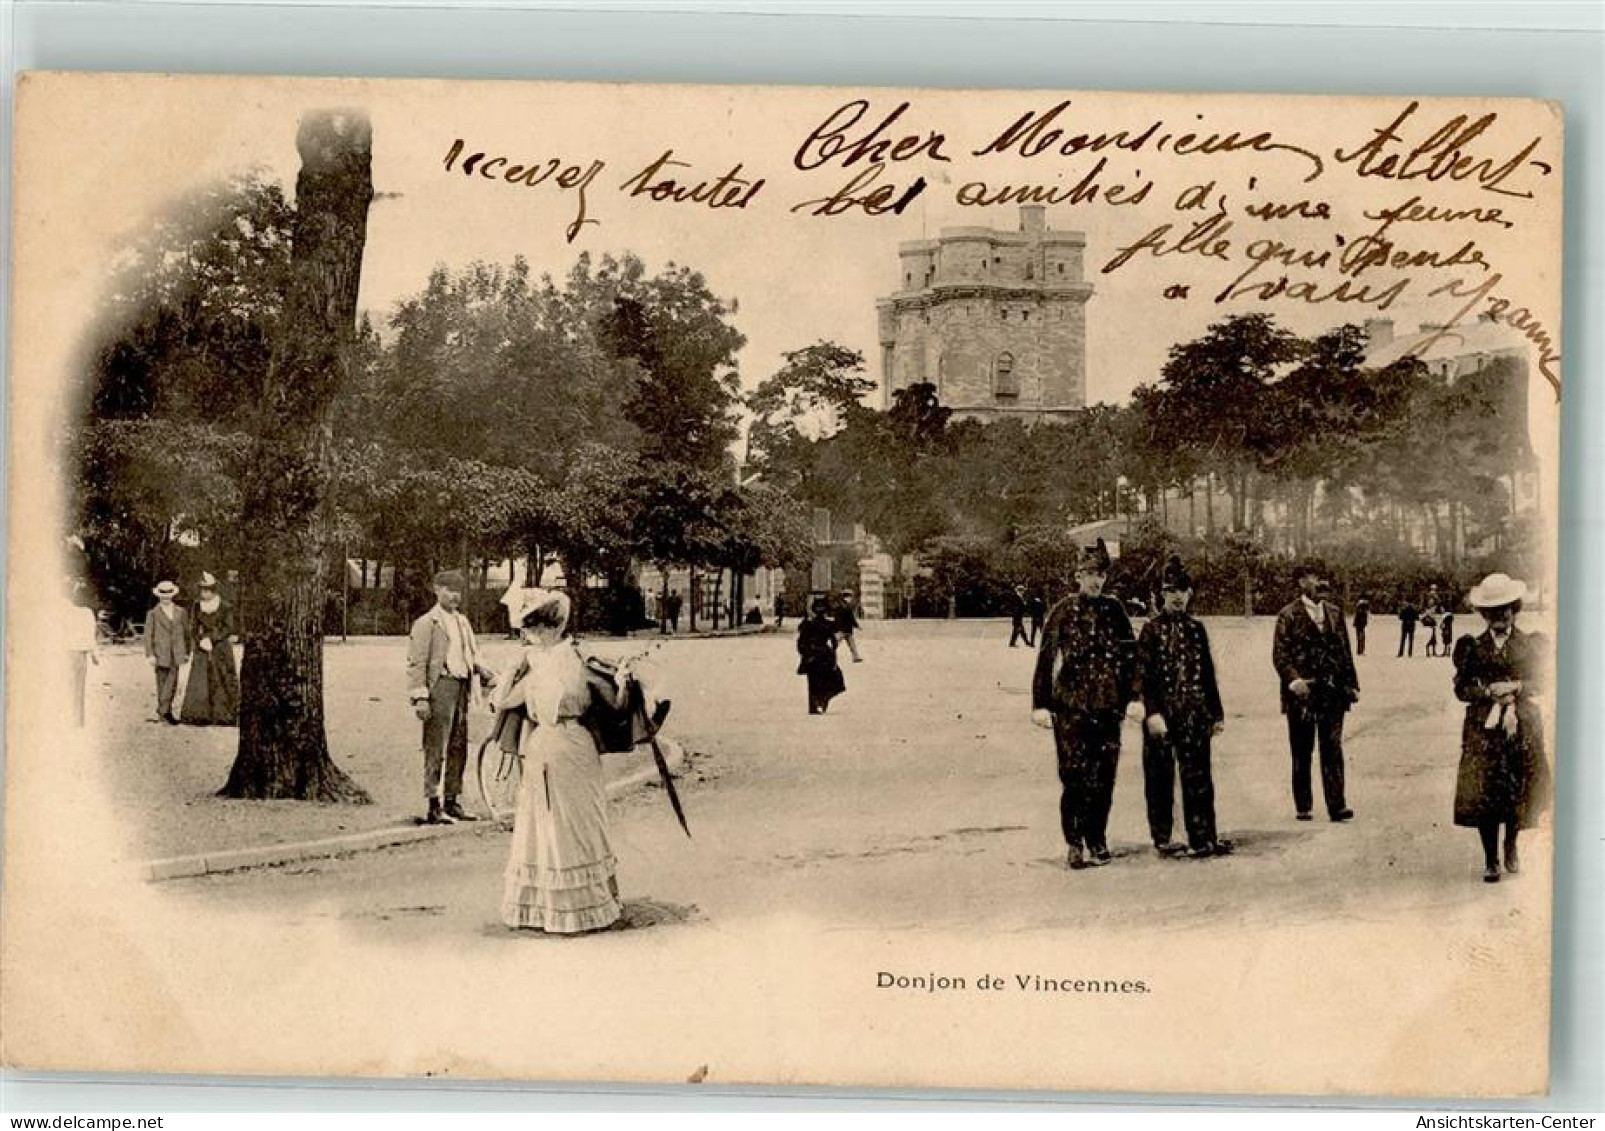 Cher Monsieur Aelbert
recevez toutes les amitiés d'une jeune
fille qui pente
a vous Jeanne
Donjon de Vincennes.
Ansichtskarten-Center